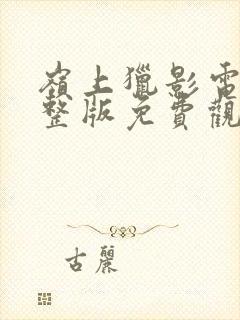 嶺上獵影電
整版免費觀
古麗